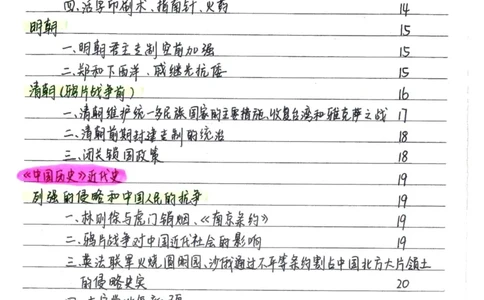 四、活字印刷术、指南针、火药 14
明朝 15
一、明朝君主专制空前加强 15
二、郑和下西洋、戚继光抗倭 15
清朝(鸦片战争前) 16
一、清朝维护统一多民族国家的主要措施、收复台湾和雅克萨之战 17
二、清朝前期封建专制的统治 18
三、闭关锁国政策 18
《中国历史》近代史 19
列强的侵略和中国人民的抗争 19
一、林则徐与虎门销烟、《南京条约》 19
二、鸦片战争对中国近代社会的影响 19
三、英法联军火烧圆明园、沙俄通过不平等条约割占中国北方大片领土
的侵略史实 20